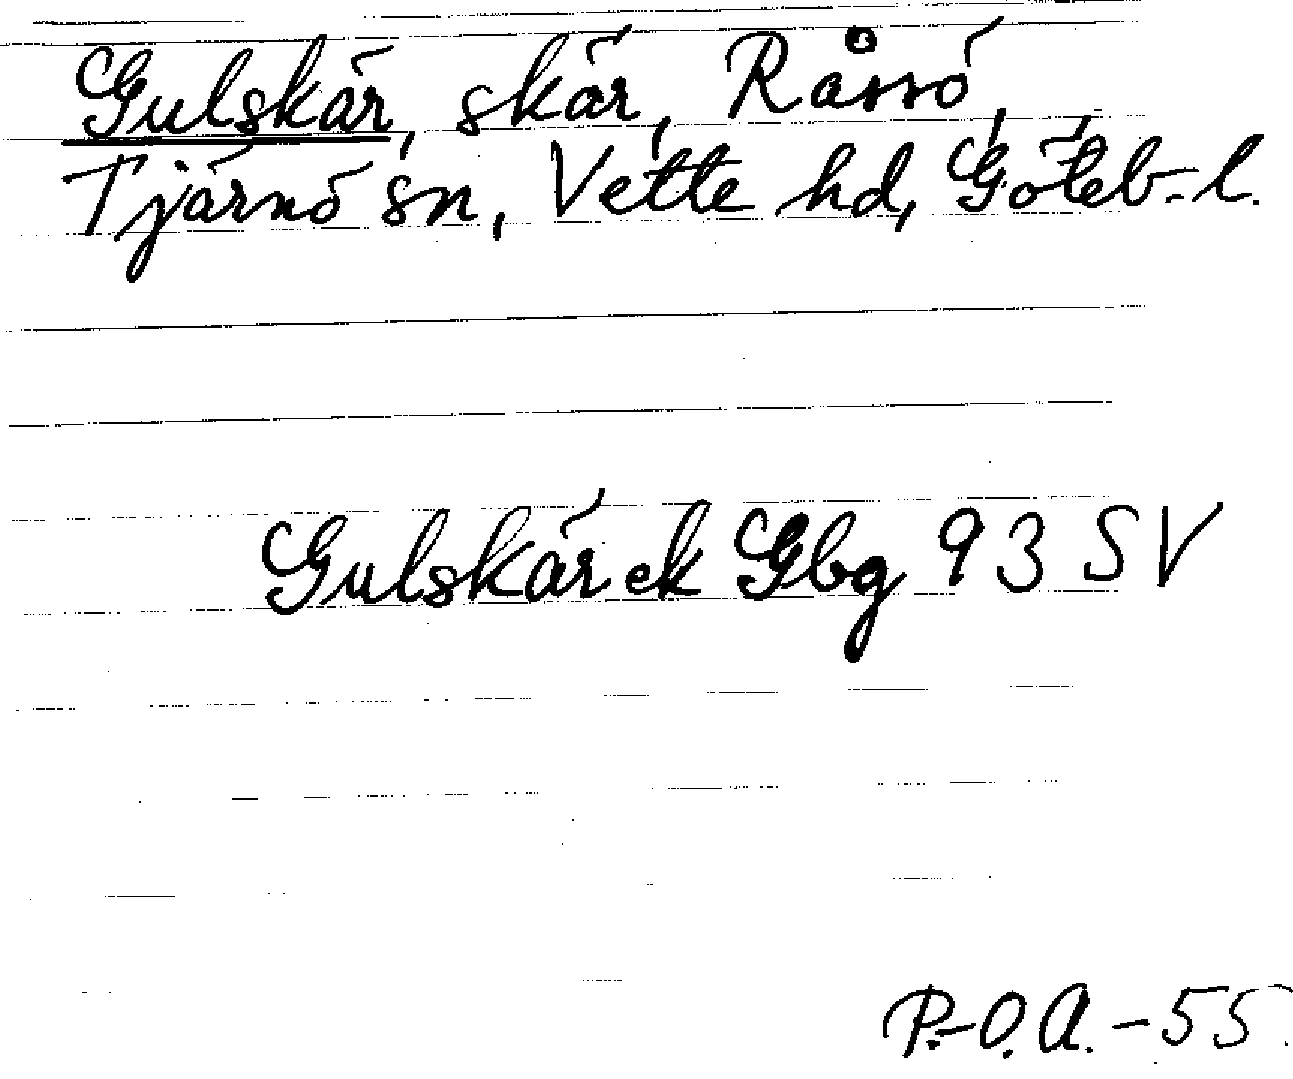 Gulskär, skär, Råssö,
Tjärnö sn, Vette hd, Göteb.-l.
Gulskär ek Gbg 93 SV
P.-O. A. -55.